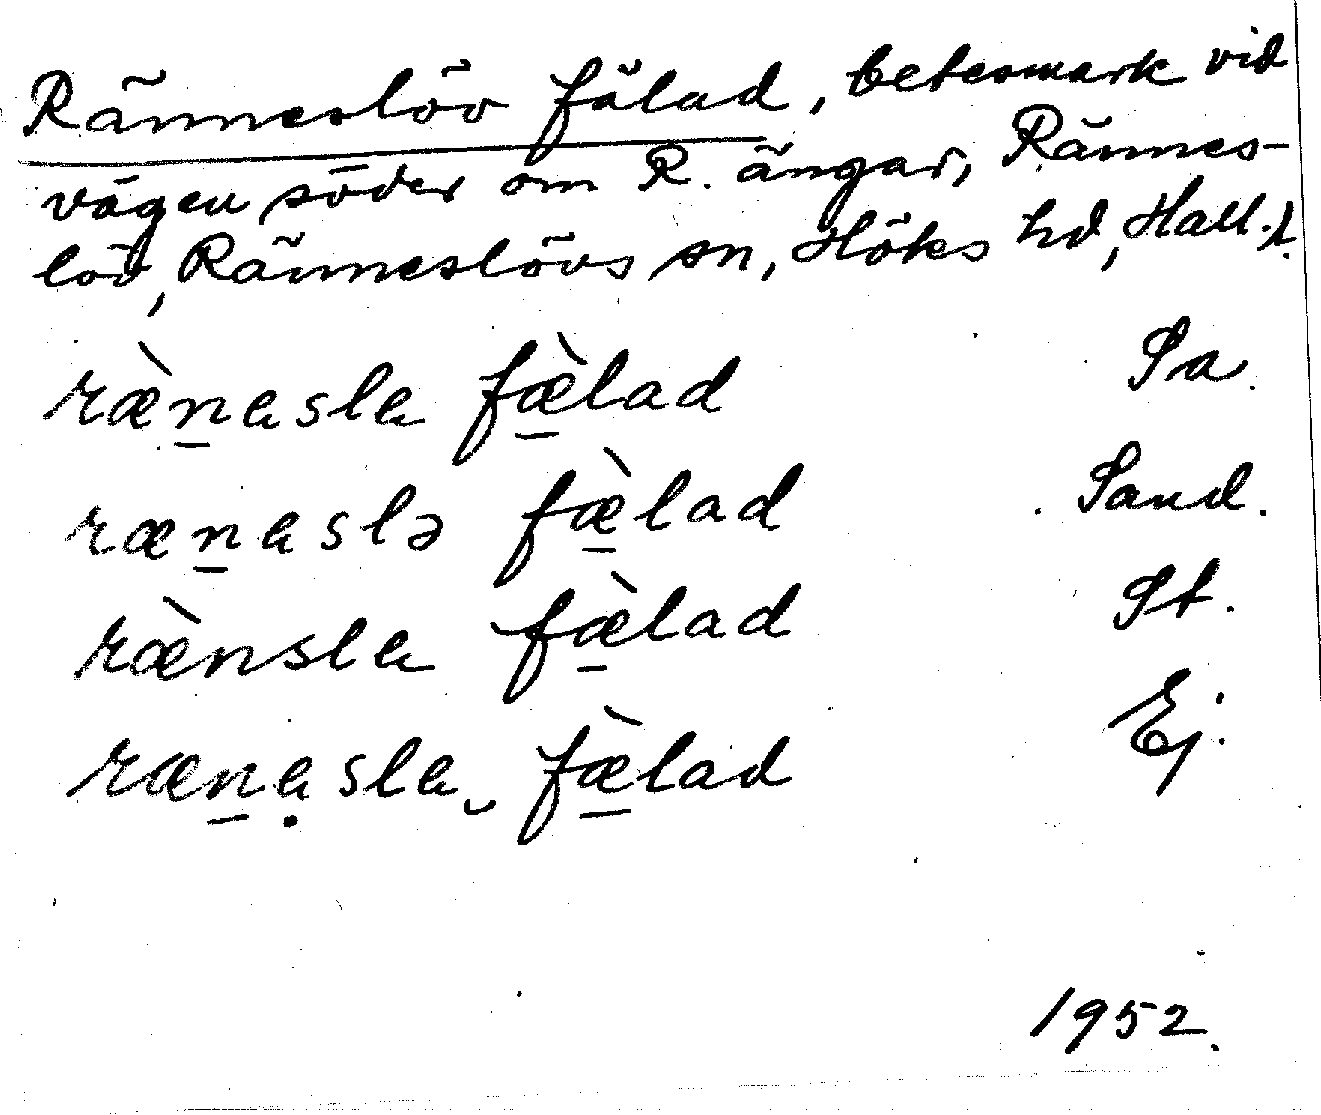 Ränneslöv fälad, betesmark vid
vägen söder om R. ängar, Rännes-
löv, Ränneslövs sn, Höks hd, Hall. l.
ræ̀n̲asla fæ̲̀lad Sa.
ræn̲aslə fæ̲̀lad Sand.
ræ̀nsla fæ̲̀lad St.
ræn̲ạsla‿ fæ̲̀lad Ej.
1952.